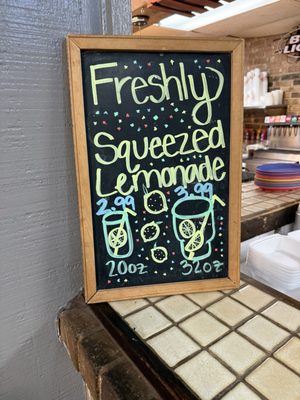 Freshly
Squeezed
Lemonade
2.99 3.99
20oz 32oz